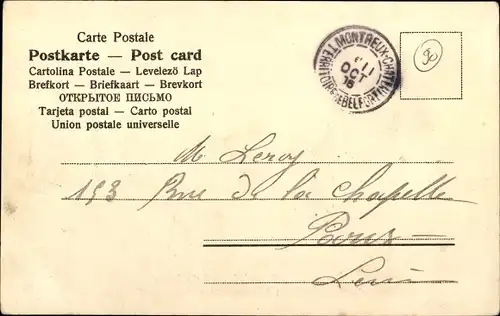 Carte Postale
Postkarte — Post card
Cartolina Postale — Levelező Lap
Brefkort — Briefkaart — Brevkort
ОТКРЫТОЕ ПИСЬМО
Tarjeta postal — Carto postal
Union postale universelle
MONTREUX-CHAT
11
OCT
TERRITOIRE DE BELFORT
50
M. Leroy
193 Rue de la Chapelle